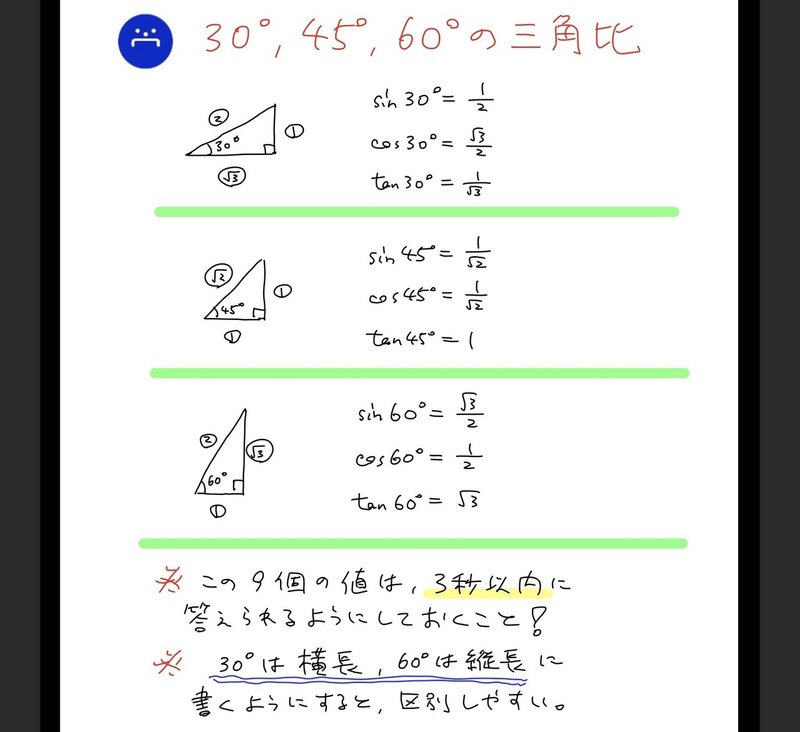 30°, 45°, 60°の三角比
② ① 30° √3
sin30° = 1/2
cos30° = √3/2
tan30° = 1/√3
√2 ① 45° ①
sin45° = 1/√2
cos45° = 1/√2
tan45° = 1
② √3 60° ①
sin60° = √3/2
cos60° = 1/2
tan60° = √3
※ この9個の値は, 3秒以内に
答えられるようにしておくこと!
※ 30°は横長, 60°は縦長に
書くようにすると, 区別しやすい。